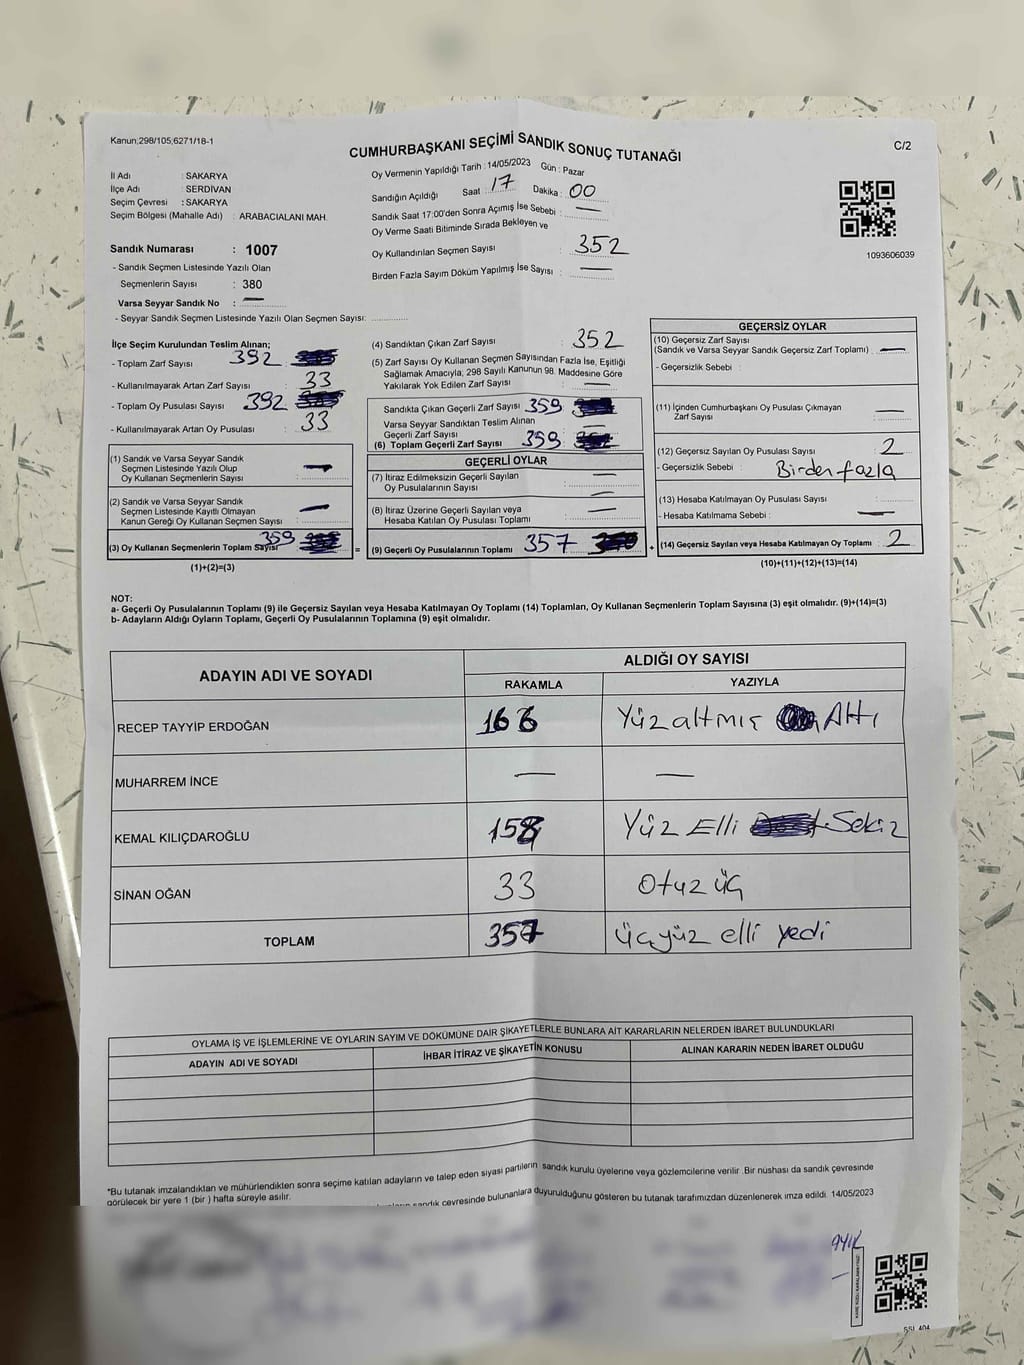 Kanun;298/105;6271/18-1
CUMHURBAŞKANI SEÇİMİ SANDIK SONUÇ TUTANAĞI
C/2
İl Adı : SAKARYA
İlçe Adı : SERDİVAN
Seçim Çevresi : SAKARYA
Seçim Bölgesi (Mahalle Adı) : ARABACIALANI MAH.
Sandık Numarası : 1007
- Sandık Seçmen Listesinde Yazılı Olan
Seçmenlerin Sayısı : 380
Varsa Seyyar Sandık No : —
- Seyyar Sandık Seçmen Listesinde Yazılı Olan Seçmen Sayısı:
Oy Vermenin Yapıldığı Tarih : 14/05/2023 Gün : Pazar
Sandığın Açıldığı Saat : 17 Dakika : 00
Sandık Saat 17:00'den Sonra Açımış İse Sebebi : —
Oy Verme Saati Bitiminde Sırada Bekleyen ve
Oy Kullandırılan Seçmen Sayısı : 352
Birden Fazla Sayım Döküm Yapılmış İse Sayısı : —
1093606039
İlçe Seçim Kurulundan Teslim Alınan;
- Toplam Zarf Sayısı : 392
- Kullanılmayarak Artan Zarf Sayısı : 33
- Toplam Oy Pusulası Sayısı : 392
- Kullanılmayarak Artan Oy Pusulası : 33
(1) Sandık ve Varsa Seyyar Sandık
Seçmen Listesinde Yazılı Olup
Oy Kullanan Seçmenlerin Sayısı : —
(2) Sandık ve Varsa Seyyar Sandık
Seçmen Listesinde Kayıtlı Olmayan
Kanun Gereği Oy Kullanan Seçmen Sayısı : —
(3) Oy Kullanan Seçmenlerin Toplam Sayısı 359
(1)+(2)=(3)
(4) Sandıktan Çıkan Zarf Sayısı : 352
(5) Zarf Sayısı Oy Kullanan Seçmen Sayısından Fazla İse, Eşitliği
Sağlamak Amacıyla; 298 Sayılı Kanunun 98. Maddesine Göre
Yakılarak Yok Edilen Zarf Sayısı : —
Sandıkta Çıkan Geçerli Zarf Sayısı 359
Varsa Seyyar Sandıktan Teslim Alınan
Geçerli Zarf Sayısı : —
(6) Toplam Geçerli Zarf Sayısı 359
GEÇERLİ OYLAR
(7) İtiraz Edilmeksizin Geçerli Sayılan
Oy Pusulalarının Sayısı : —
(8) İtiraz Üzerine Geçerli Sayılan veya
Hesaba Katılan Oy Pusulası Toplamı : —
= (9) Geçerli Oy Pusulalarının Toplamı 357 +
GEÇERSİZ OYLAR
(10) Geçersiz Zarf Sayısı
(Sandık ve Varsa Seyyar Sandık Geçersiz Zarf Toplamı) : —
- Geçersizlik Sebebi :
(11) İçinden Cumhurbaşkanı Oy Pusulası Çıkmayan
Zarf Sayısı : —
(12) Geçersiz Sayılan Oy Pusulası Sayısı : 2
- Geçersizlik Sebebi : Birden fazla
(13) Hesaba Katılmayan Oy Pusulası Sayısı :
- Hesaba Katılmama Sebebi : —
(14) Geçersiz Sayılan veya Hesaba Katılmayan Oy Toplamı : 2
(10)+(11)+(12)+(13)=(14)
NOT:
a- Geçerli Oy Pusulalarının Toplamı (9) ile Geçersiz Sayılan veya Hesaba Katılmayan Oy Toplamı (14) Toplamları, Oy Kullanan Seçmenlerin Toplam Sayısına (3) eşit olmalıdır. (9)+(14)=(3)
b- Adayların Aldığı Oyların Toplamı, Geçerli Oy Pusulalarının Toplamına (9) eşit olmalıdır.
ADAYIN ADI VE SOYADI ALDIĞI OY SAYISI
RAKAMLA YAZIYLA
RECEP TAYYİP ERDOĞAN 166 Yüz altmış Altı
MUHARREM İNCE — —
KEMAL KILIÇDAROĞLU 158 Yüz Elli Sekiz
SİNAN OĞAN 33 Otuz üç
TOPLAM 357 üçyüz elli yedi
OYLAMA İŞ VE İŞLEMLERİNE VE OYLARIN SAYIM VE DÖKÜMÜNE DAİR ŞİKAYETLERLE BUNLARA AİT KARARLARIN NELERDEN İBARET BULUNDUKLARI
ADAYIN ADI VE SOYADI İHBAR İTİRAZ VE ŞİKAYETİN KONUSU ALINAN KARARIN NEDEN İBARET OLDUĞU
*Bu tutanak imzalandıktan ve mühürlendikten sonra seçime katılan adayların ve talep eden siyasi partilerin sandık kurulu üyelerine veya gözlemcilerine verilir .Bir nüshası da sandık çevresinde
görülecek bir yere 1 (bir ) hafta süreyle asılır.
sandık çevresinde bulunanlara duyurulduğunu gösteren bu tutanak tarafımızdan düzenlenerek imza edildi. 14/05/2023